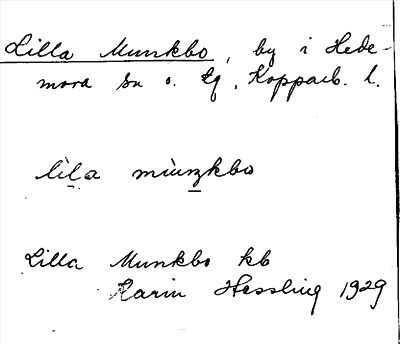 Lilla Munkbo, by i Hede-
mora sn o. tg, Kopparb. l.
lìla mùnkbo
Lilla Munkbo kb
Karin Hessling 1929